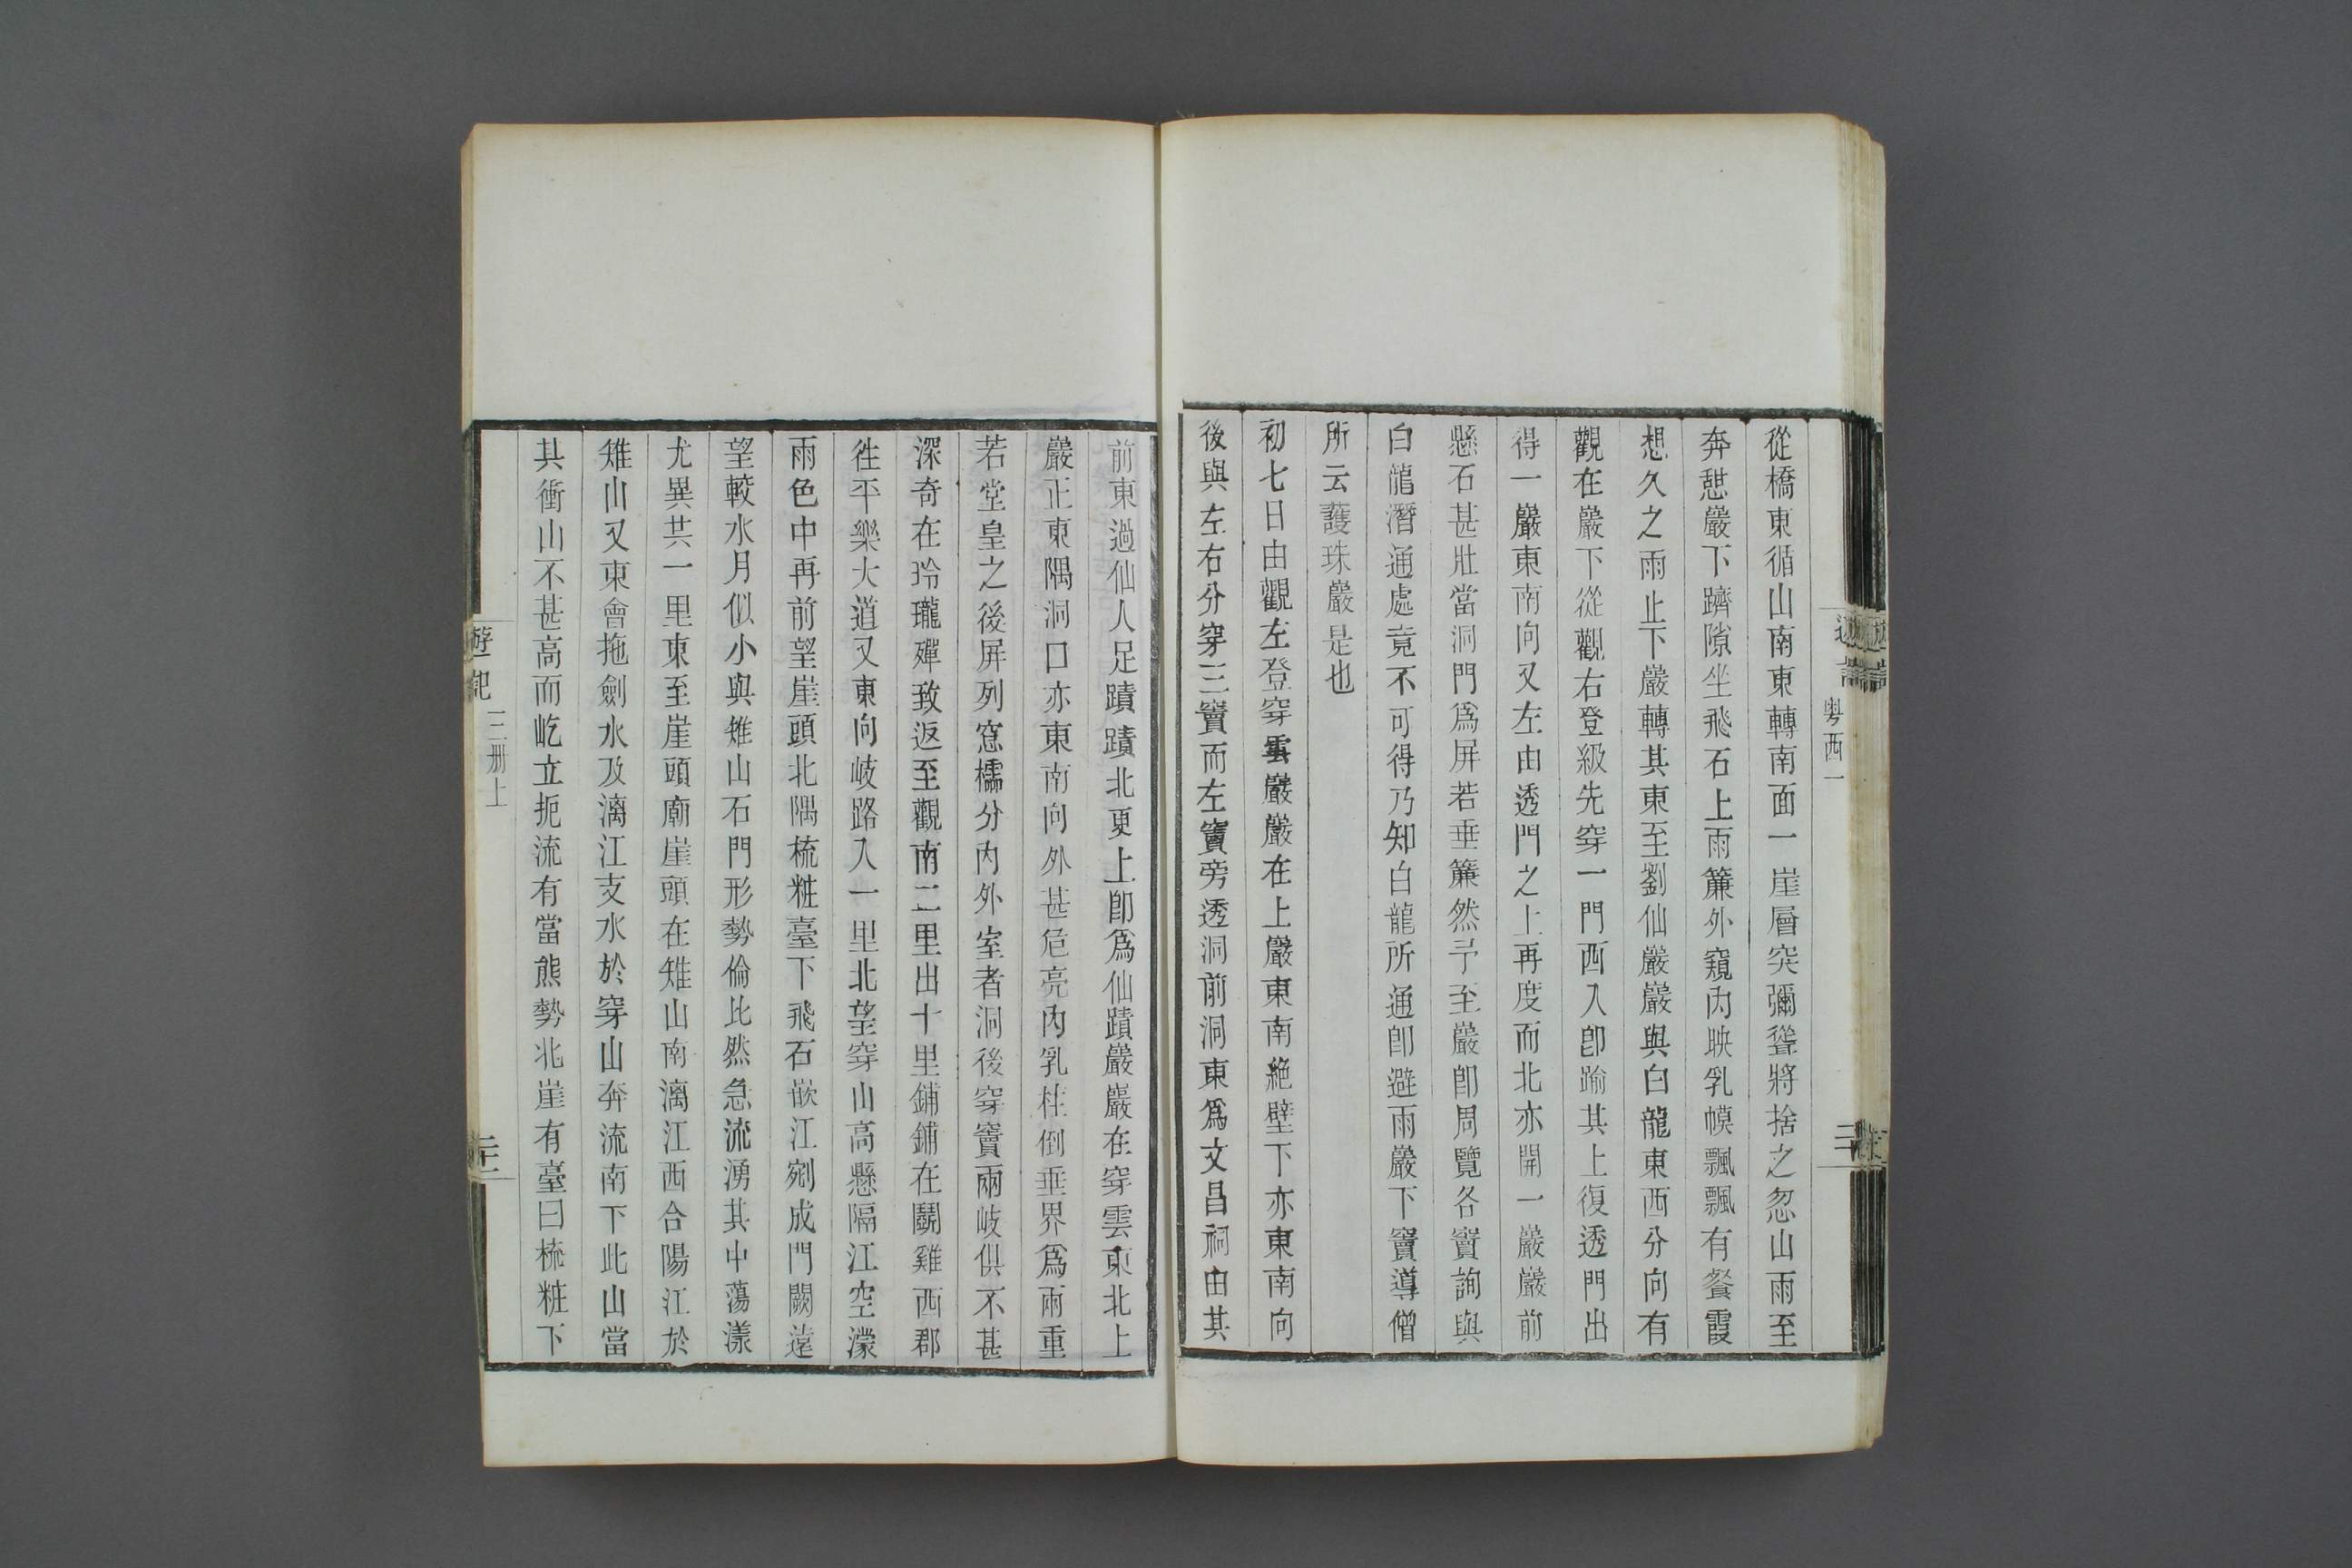 粤西一
從橋東循山南東轉南面一崖層突彌聳將捨之忽山雨至
奔憇巖下躋隙坐飛石上雨簾外窺內映乳幙飄飄有餐霞
想久之雨止下巖轉其東至劉仙巖巖與白龍東西分向有
觀在巖下從觀右登級先穿一門西入卽踰其上復透門出
得一巖東南向又左由透門之上再度而北亦開一巖巖前
懸石甚壯當洞門爲屏若垂簾然予至巖卽周覽各竇詢與
白龍潛通處竟不可得乃知白龍所通卽避雨巖下竇導僧
所云護珠巖是也
初七日由觀左登穿雲巖巖在上巖東南絶壁下亦東南向
後與左右分穿三竇而左竇旁透洞前洞東爲文昌祠由其
前東過仙人足蹟蹟北更上卽爲仙蹟巖巖在穿雲東北上
巖正東隅洞口亦東南向外甚危亮內乳柱倒垂界爲兩重
若堂皇之後屏列窓櫺分內外室者洞後穿竇兩岐俱不甚
深奇在玲瓏殫致返至觀南二里出十里鋪鋪在鬭雞西郡
徃平樂大道又東向岐路入一里北望穿山高懸隔江空濛
雨色中再前望崖頭北隅梳粧臺下飛石嵌江剜成門闕遠
望較水月似小與雉山石門形勢倫比然急流湧其中蕩漾
尤異共一里東至崖頭廟崖頭在雉山南漓江西合陽江於
雉山又東會拖劍水及漓江支水於穿山奔流南下此山當
其衝山不甚高而屹立扼流有當熊勢北崖有臺曰梳粧下
遊記
三册上